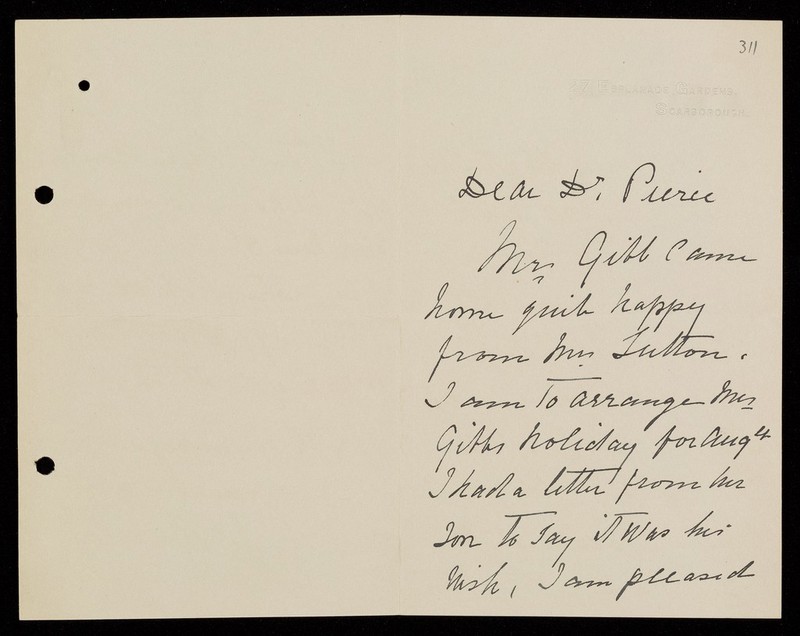 311
Esplanade Gardens,
Scarborough.
Dear Dr. Pierce
Mrs Gibb Came
home quite happy
from Mrs Sutton.
I am to arrange Mrs
Gibbs holiday for Augst
I had a letter from her
son to say it was his
wish, I am pleased